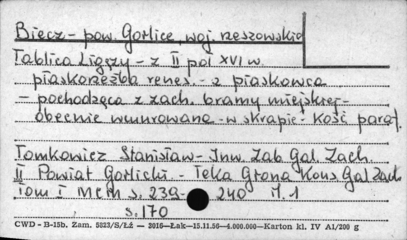 Biecz - pow. Gorlice, woj. rzeszowskie
Tablica Ligęzy - z II poł XVI w.
płaskorzeźba renes. - z piaskowca
- pochodząca z zach. bramy miejskiej -
obecnie wmurowana - w skarpie - Kość paraf.
Tomkowicz Stanisław - Inw. Zab. Gal. Zach.
II Powiat Gorlicki - Teka Grona Kons Gal Zach.
tom I s. 239 - 240 il. 1
s. 170
CWD - B-15b. Zam. 5823/S/Łż — 3016—Łak—15.11.56—4.000.000—Karton kl. IV A1/200 g